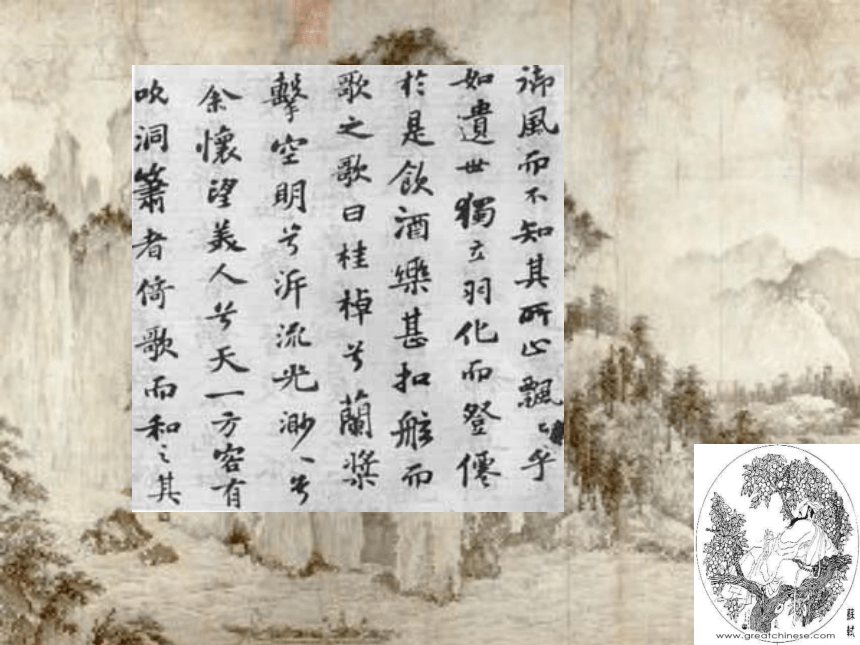 御風而不知其所止飄〻乎
如遺世獨立羽化而登僊
於是飲酒樂甚扣舷而
歌之歌曰桂棹兮蘭槳
擊空明兮泝流光渺〻兮
余懷望美人兮天一方客有
吹洞簫者倚歌而和之其
蘇軾
www.greatchinese.com